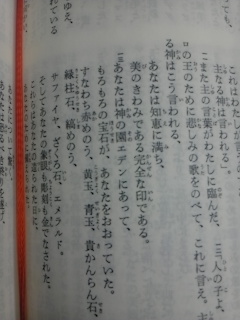 これはわたしの言
主なる神は言われる」。
二また主の言葉がわたしに臨んだ、三「人の子よ、
ロの王のために悲しみの歌をのべて、これに言え。主
る神はこう言われる、
あなたは知恵に満ち、
美のきわみである完全な印である。
三あなたは神の園エデンにあって、
もろもろの宝石が、あなたをおおっていた。
すなわち赤めのう、黄玉、青玉、貴かんらん石、
緑柱石、縞めのう、
サファイヤ、ざくろ石、エメラルド。
そしてあなたの象眼も彫刻も金でなされた。
これらはあなたの造られた日に、
あなたのために備えられた。